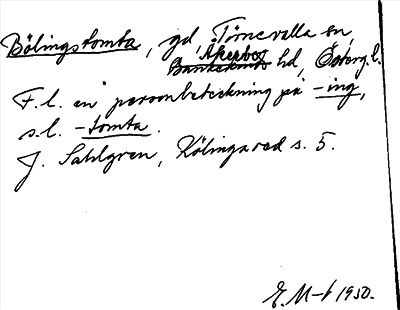 Bölingstomta, gd, Törnevalla sn,
Åkerbo
Bankekinds hd, Österg. l.
F.l. en personbeteckning på -ing,
s.l. -tomta.
J. Sahlgren, Kölingared s. 5.
E. M-t 1950.